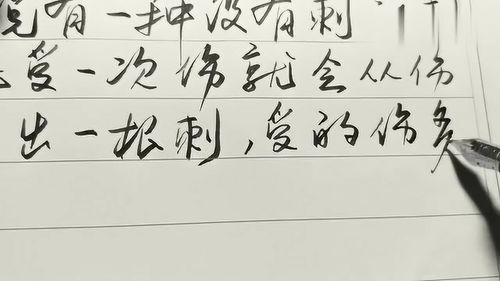 说有一种没有刺
受一次伤就会从伤
出一根刺,受的伤多